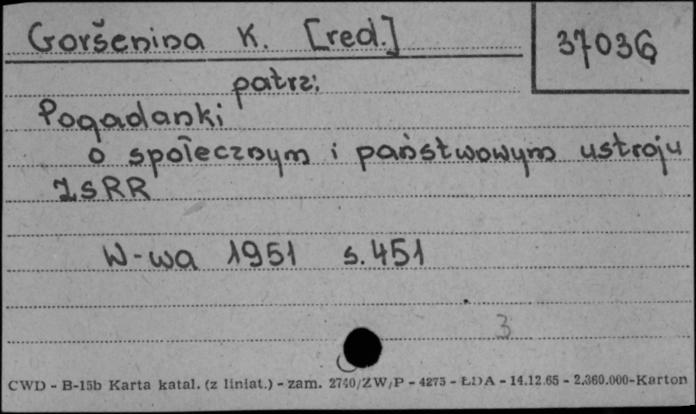 Goršenina K. [red.]
37036
patrz:
Pogadanki
o społecznym i państwowym ustroju
ZSRR
W-wa 1951 s. 451
3
CWD - B-15b Karta katal. (z liniat.) - zam. 2740/ZW/P - 4275 - ŁDA - 14.12.65 - 2.360.000-Karton